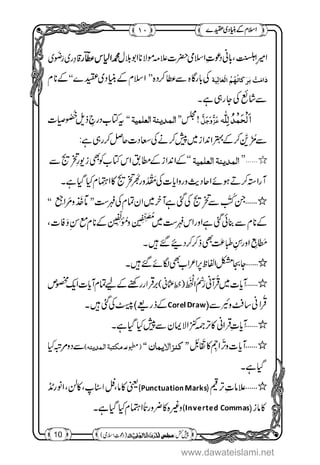 اسلام کے بنیادی عقیدے
۱۰
امیرِ اہلسنّت، بانیِ دعوتِ اسلامی حضرت علامہ مولانا ابو بلال محمد الیاس عطار قادری رضوی
دَامَتْ بَرَكَاتُهُمُ الْعَالِيَه کی بارگاہ سے عطا کردہ ”اسلام کے بنیادی عقیدے“ کے نام
سے شائع کی جا رہی ہے۔
اَلْحَمْدُ لِلّٰه عَزَّوَجَلَّ! مجلس ”المدينة العلمية“ یہ کتاب درج ذیل خصوصیات
سے مُزَیَّن کر کے بہتر انداز میں پیش کرنے کی سعادت حاصل کر رہی ہے:
☆......”المدينة العلمية“ کے انداز کے مطابق اس کتاب کو بھی زیورِ تخریج سے
آراستہ کرتے ہوئے احادیث و روایات کی مقدور بھر تخریج کا اہتمام کیا گیا ہے۔
☆......جن کتب سے تخریج کی گئی ہے آخر میں ان تمام کی فہرست ”مآخذ و مراجع“
کے نام سے بنائی گئی ہے اور اس فہرست میں مصنفین و مؤلفین کے نام مع سن وفات،
مطابع اور سنِ طباعت بھی ذکر کر دئیے گئے ہیں۔
☆......جابجا مشکل الفاظ پر اعراب بھی لگائے گئے ہیں۔
☆......آیات میں قرآنی رسم الخط (خطِ عثمانی) برقرار رکھنے کے لئے تمام آیات ایک مخصوص
قرآنی سافٹ ویئر سے (Corel Draw کے ذریعے) پیسٹ کی گئی ہیں۔
☆......آیاتِ قرآنی کا ترجمہ کنز الایمان سے پیش کیا گیا ہے۔
☆......آیات و تراجم کا تقابل ”كنز الايمان“ (مطبوعہ مکتبۃ المدینہ) سے دو مرتبہ کیا
گیا ہے۔
☆......علاماتِ ترقیم (Punctuation Marks) یعنی کاما، فل اسٹاپ، کالن، انورٹڈ
کاماز (Inverted Commas) وغیرہ کا ضرورتاً اہتمام کیا گیا ہے۔
10
www.dawateislami.net